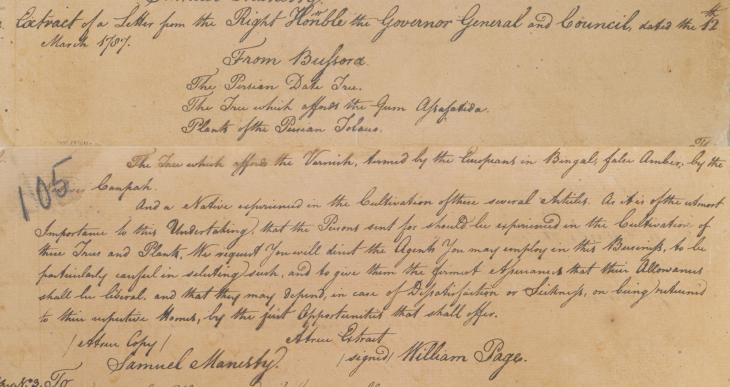 Extract of a Letter from the Right Honble the Governor General and Council, dated the 12th
March 1787.
From Bussora.
The Persian Date Tree.
The Tree which affords the Gum Assafœtida.
Plants of the Persian Tobacco.
The Tree which affords the Varnish, termed by the Europeans in Bengal, false Amber, by the
Caupah.
105
And a Native experienced in the Cultivation of these several Articles. As it is of the utmost
Importance to this Undertaking, that the Persons sent for should be experienced in the Cultivation of
these Trees and Plants, We request You will direct the Agents You may employ in this Business, to be
particularly careful in selecting such, and to give them the firmest Assurances that their Allowances
shall be liberal, and that they may depend, in case of Dissatisfaction or Sickness, on being returned
to their respective Homes, by the first Opportunities that shall offer.
/A true Copy/ A true Extract
Samuel Manesty. /signed/ William Page.
No 3. To